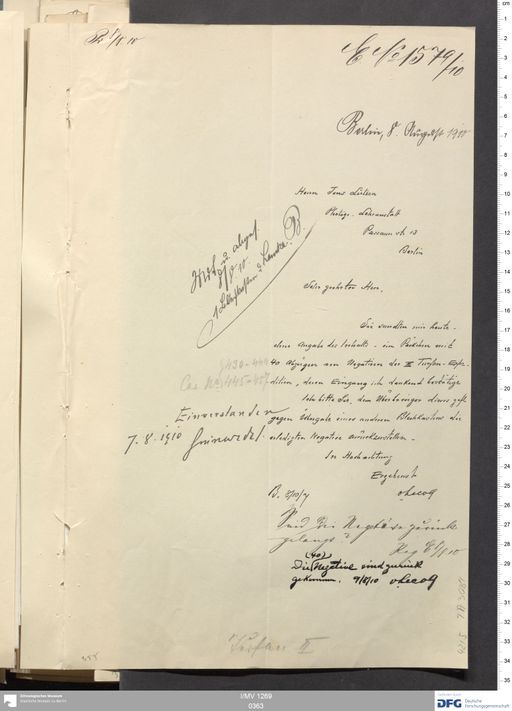 E No 1579/10
Berlin, 8. August 1910
Herrn Jens Lützen
Photogr. Lehranstalt
Passauerstr. 13
Berlin
Sehr geehrter Herr,
Sie sandten mir heute -
ohne Angabe des Inhalts - ein Päckchen mit
40 Abzügen von Negativen der II Turfan-Expe-
dition, deren Eingang ich dankend bestätige
Ich bitte Sie, dem Überbringer dieses gefl.
gegen Übergabe eines anderen Blechkastens die
erledigten Negative zurückzustellen.
In Hochachtung
Ergebenst
vLecoq
B. 8/10/7
Einverstanden
7. 8. 1910 Grünwedel.
Sind die Negative zurück-
gelangt?
(40)
Die Negative sind zurück
gekommen. 9/8/10 vLecoq
Turfan II
I/MV 1269
0363
Ethnologisches Museum
Staatliche Museen zu Berlin
DFG Deutsche
Forschungsgemeinschaft